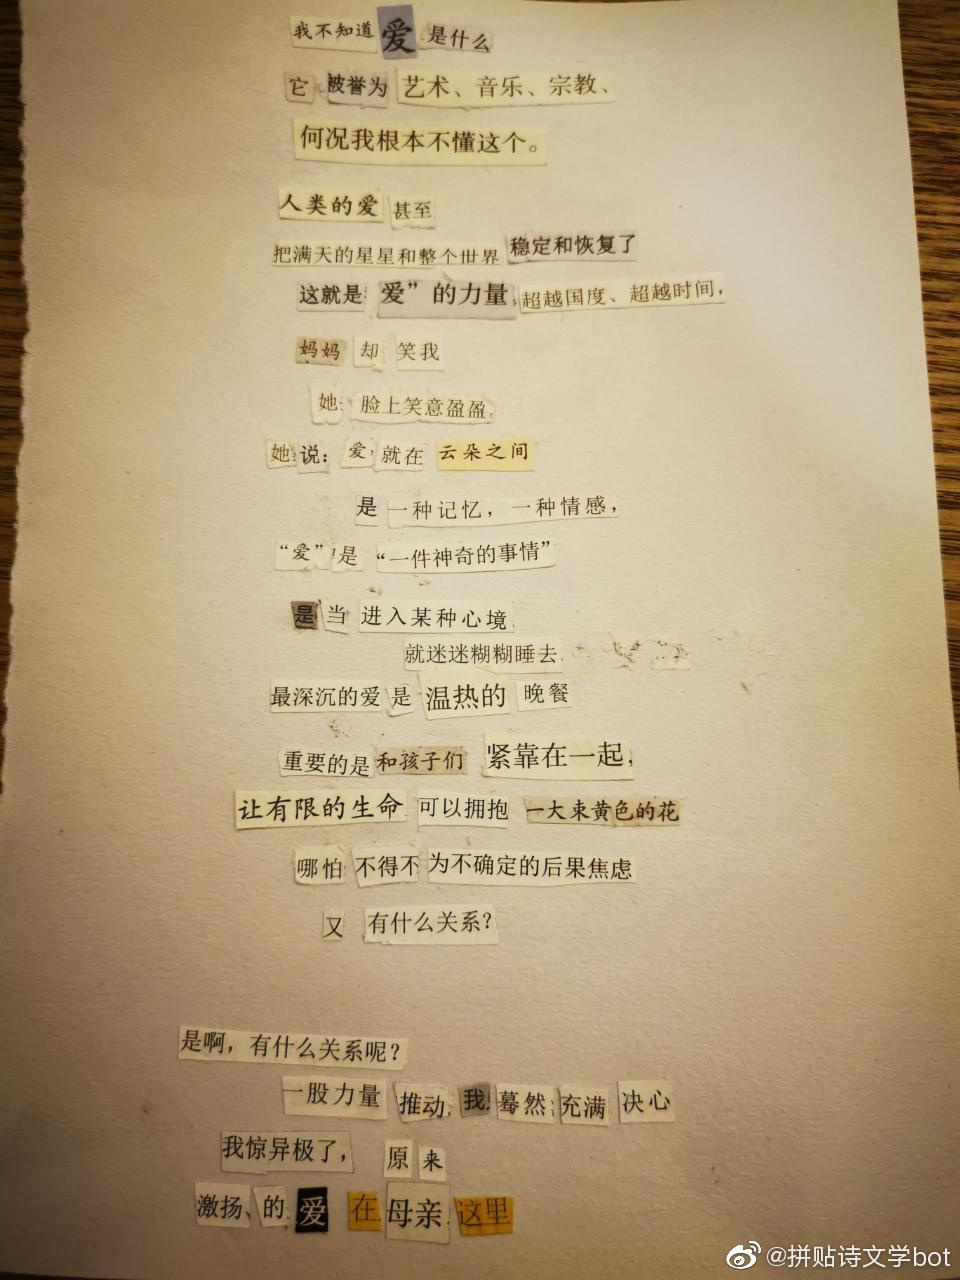 我不知道爱是什么
它被誉为艺术、音乐、宗教、
何况我根本不懂这个。
人类的爱甚至
把满天的星星和整个世界稳定和恢复了
这就是爱”的力量,超越国度、超越时间,
妈妈却笑我
她脸上笑意盈盈。
她说:爱就在云朵之间
是一种记忆,一种情感,
“爱”是“一件神奇的事情”
是当进入某种心境
就迷迷糊糊睡去
最深沉的爱是温热的晚餐
重要的是和孩子们紧靠在一起,
让有限的生命可以拥抱一大束黄色的花
哪怕不得不为不确定的后果焦虑
又有什么关系?
是啊,有什么关系呢?
一股力量推动我蓦然充满决心
我惊异极了,原来
激扬、的爱在母亲这里
@拼贴诗文学bot